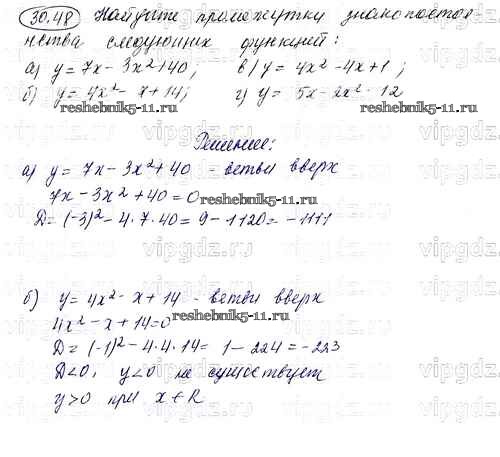 30.48 Найдите промежутки знакопостоян
нства следующих функций:
а) y = 7x - 3x² + 40; в) y = 4x² - 4x + 1;
б) y = 4x² - x + 14; г) y = 5x - 2x² - 12
reshebnik5-11.ru reshebnik5-11.ru
Решение:
а) y = 7x - 3x² + 40 - ветви вверх
7x - 3x² + 40 = 0
reshebnik5-11.ru
D = (-3)² - 4·7·40 = 9 - 1120 = -1111
б) y = 4x² - x + 14 - ветви вверх
reshebnik5-11.ru
4x² - x + 14 = 0
D = (-1)² - 4·4·14 = 1 - 224 = -223
D < 0, y < 0 не существует
y > 0 при x ∈ R